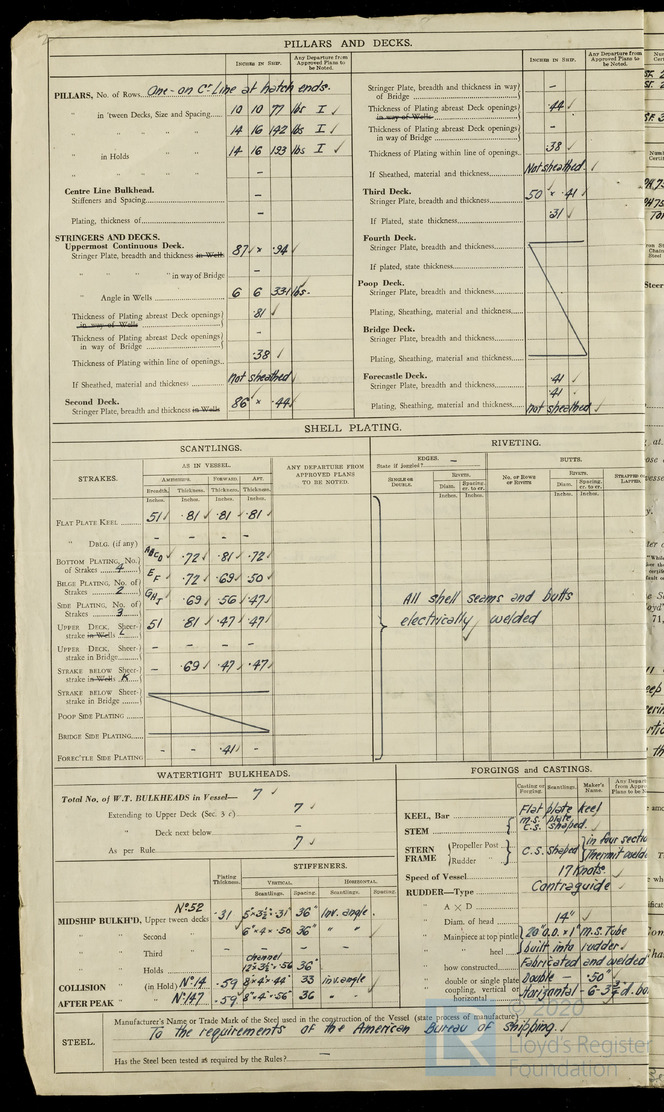 PILLARS AND DECKS.
INCHES IN SHIP.
Any Departure from Approved Plans to be Noted.
PILLARS, No. of Rows One - on Cr Line at hatch ends.
" in 'tween Decks, Size and Spacing 10 10 77 lbs I ✓
" " " " 14 16 142 lbs I ✓
" in Holds 14 16 193 lbs I ✓
" " " " –
Centre Line Bulkhead.
Stiffeners and Spacing –
Plating, thickness of –
STRINGERS AND DECKS.
Uppermost Continuous Deck.
Stringer Plate, breadth and thickness in Wells 87 ✓ × .94 ✓
" " " " in way of Bridge –
" Angle in Wells 6 6 33.1 lbs.
Thickness of Plating abreast Deck openings in way of Wells .81 ✓
Thickness of Plating abreast Deck openings in way of Bridge –
Thickness of Plating within line of openings .38 ✓
If Sheathed, material and thickness not sheathed ✓
Second Deck.
Stringer Plate, breadth and thickness in Wells 86 × .44 ✓
INCHES IN SHIP.
Any Departure from Approved Plans to be Noted.
Stringer Plate, breadth and thickness in way of Bridge –
Thickness of Plating abreast Deck openings in way of Wells .44 ✓
Thickness of Plating abreast Deck openings in way of Bridge –
Thickness of Plating within line of openings .38 ✓
If Sheathed, material and thickness Not sheathed ✓
Third Deck.
Stringer Plate, breadth and thickness 50 × .41 ✓
If Plated, state thickness .31 ✓
Fourth Deck.
Stringer Plate, breadth and thickness
If plated, state thickness
Poop Deck.
Stringer Plate, breadth and thickness
Plating, Sheathing, material and thickness
Bridge Deck.
Stringer Plate, breadth and thickness
Plating, Sheathing, material and thickness
Forecastle Deck.
Stringer Plate, breadth and thickness .41 ✓
.41 ✓
Plating, Sheathing, material and thickness not sheathed ✓
SHELL PLATING.
SCANTLINGS.
RIVETING.
STRAKES.
AS IN VESSEL.
ANY DEPARTURE FROM APPROVED PLANS TO BE NOTED.
EDGES. –
State if joggled?
BUTTS.
AMIDSHIPS. FORWARD. AFT.
Breadth. Thickness. Thickness. Thickness.
Inches. Inches. Inches. Inches.
SINGLE OR DOUBLE.
RIVETS.
Diam. Spacing cr. to cr.
Inches. Inches.
No. of Rows of Rivets
RIVETS.
Diam. Spacing cr. to cr.
Inches. Inches.
STRAPPED OR LAPPED.
FLAT PLATE KEEL 51 ✓ .81 ✓ .81 ✓ .81 ✓
" DBLG. (if any) – – – –
BOTTOM PLATING, No. of Strakes 4 ABCD ✓ .72 ✓ .81 ✓ .72 ✓
BILGE PLATING, No. of Strakes 2 E F ✓ .72 ✓ .69 ✓ .50 ✓
SIDE PLATING, No. of Strakes 3 GHJ ✓ .69 ✓ .56 ✓ .47 ✓
UPPER DECK, Sheer-strake in Wells L 51 .81 ✓ .47 ✓ .47 ✓
UPPER DECK, Sheer-strake in Bridge – – – –
STRAKE BELOW Sheer-strake in Wells K – .69 ✓ .47 ✓ .47 ✓
STRAKE BELOW Sheer-strake in Bridge
POOP SIDE PLATING
BRIDGE SIDE PLATING
FOREC'TLE SIDE PLATING – – .41 ✓ –
All shell seams and butts
electrically welded
✓
WATERTIGHT BULKHEADS.
Total No. of W.T. BULKHEADS in Vessel— 7 ✓
Extending to Upper Deck (Sec. 3 c) 7 ✓
" Deck next below –
As per Rule 7 ✓
Plating Thickness.
STIFFENERS.
VERTICAL. HORIZONTAL.
Scantlings. Spacing. Scantlings. Spacing.
MIDSHIP BULKH'D, Upper tween decks No 52 .31 5"×3½"×.31" 36" Inv. angle
" " Second " 6"×4"×.50 36" " " ✓
" " Third " – – – –
" " Holds channel 36"
COLLISION " (in Hold) No 14 .59 8"×4"×.44" 33 inv. angle
AFTER PEAK " " No 147 .59 8"×4"×.56" 36 " " ✓
FORGINGS and CASTINGS.
Casting or Forging. Scantlings. Maker's Name.
KEEL, Bar Flat plate keel
STEM m.s. plate
C.S. shaped. ✓
STERN FRAME Propeller Post
Rudder " C.S. Shaped
Speed of Vessel 17 Knots.
RUDDER—Type Contraguide ✓
" A × D
" Diam. of head 14" ✓
" Mainpiece at top pintle 20" O.D. × 1" M.S. Tube
" " heel built into rudder ✓
" how constructed Fabricated and welded
" double or single plate Double – .50" ✓
" coupling, vertical or horizontal Horizontal
STEEL.
Manufacturer's Name or Trade Mark of the Steel used in the construction of the Vessel (state process of manufacture)
To the requirements of the American Bureau of shipping. ✓
Has the Steel been tested as required by the Rules? –
LR
© 2020
Lloyd's Register
Foundation